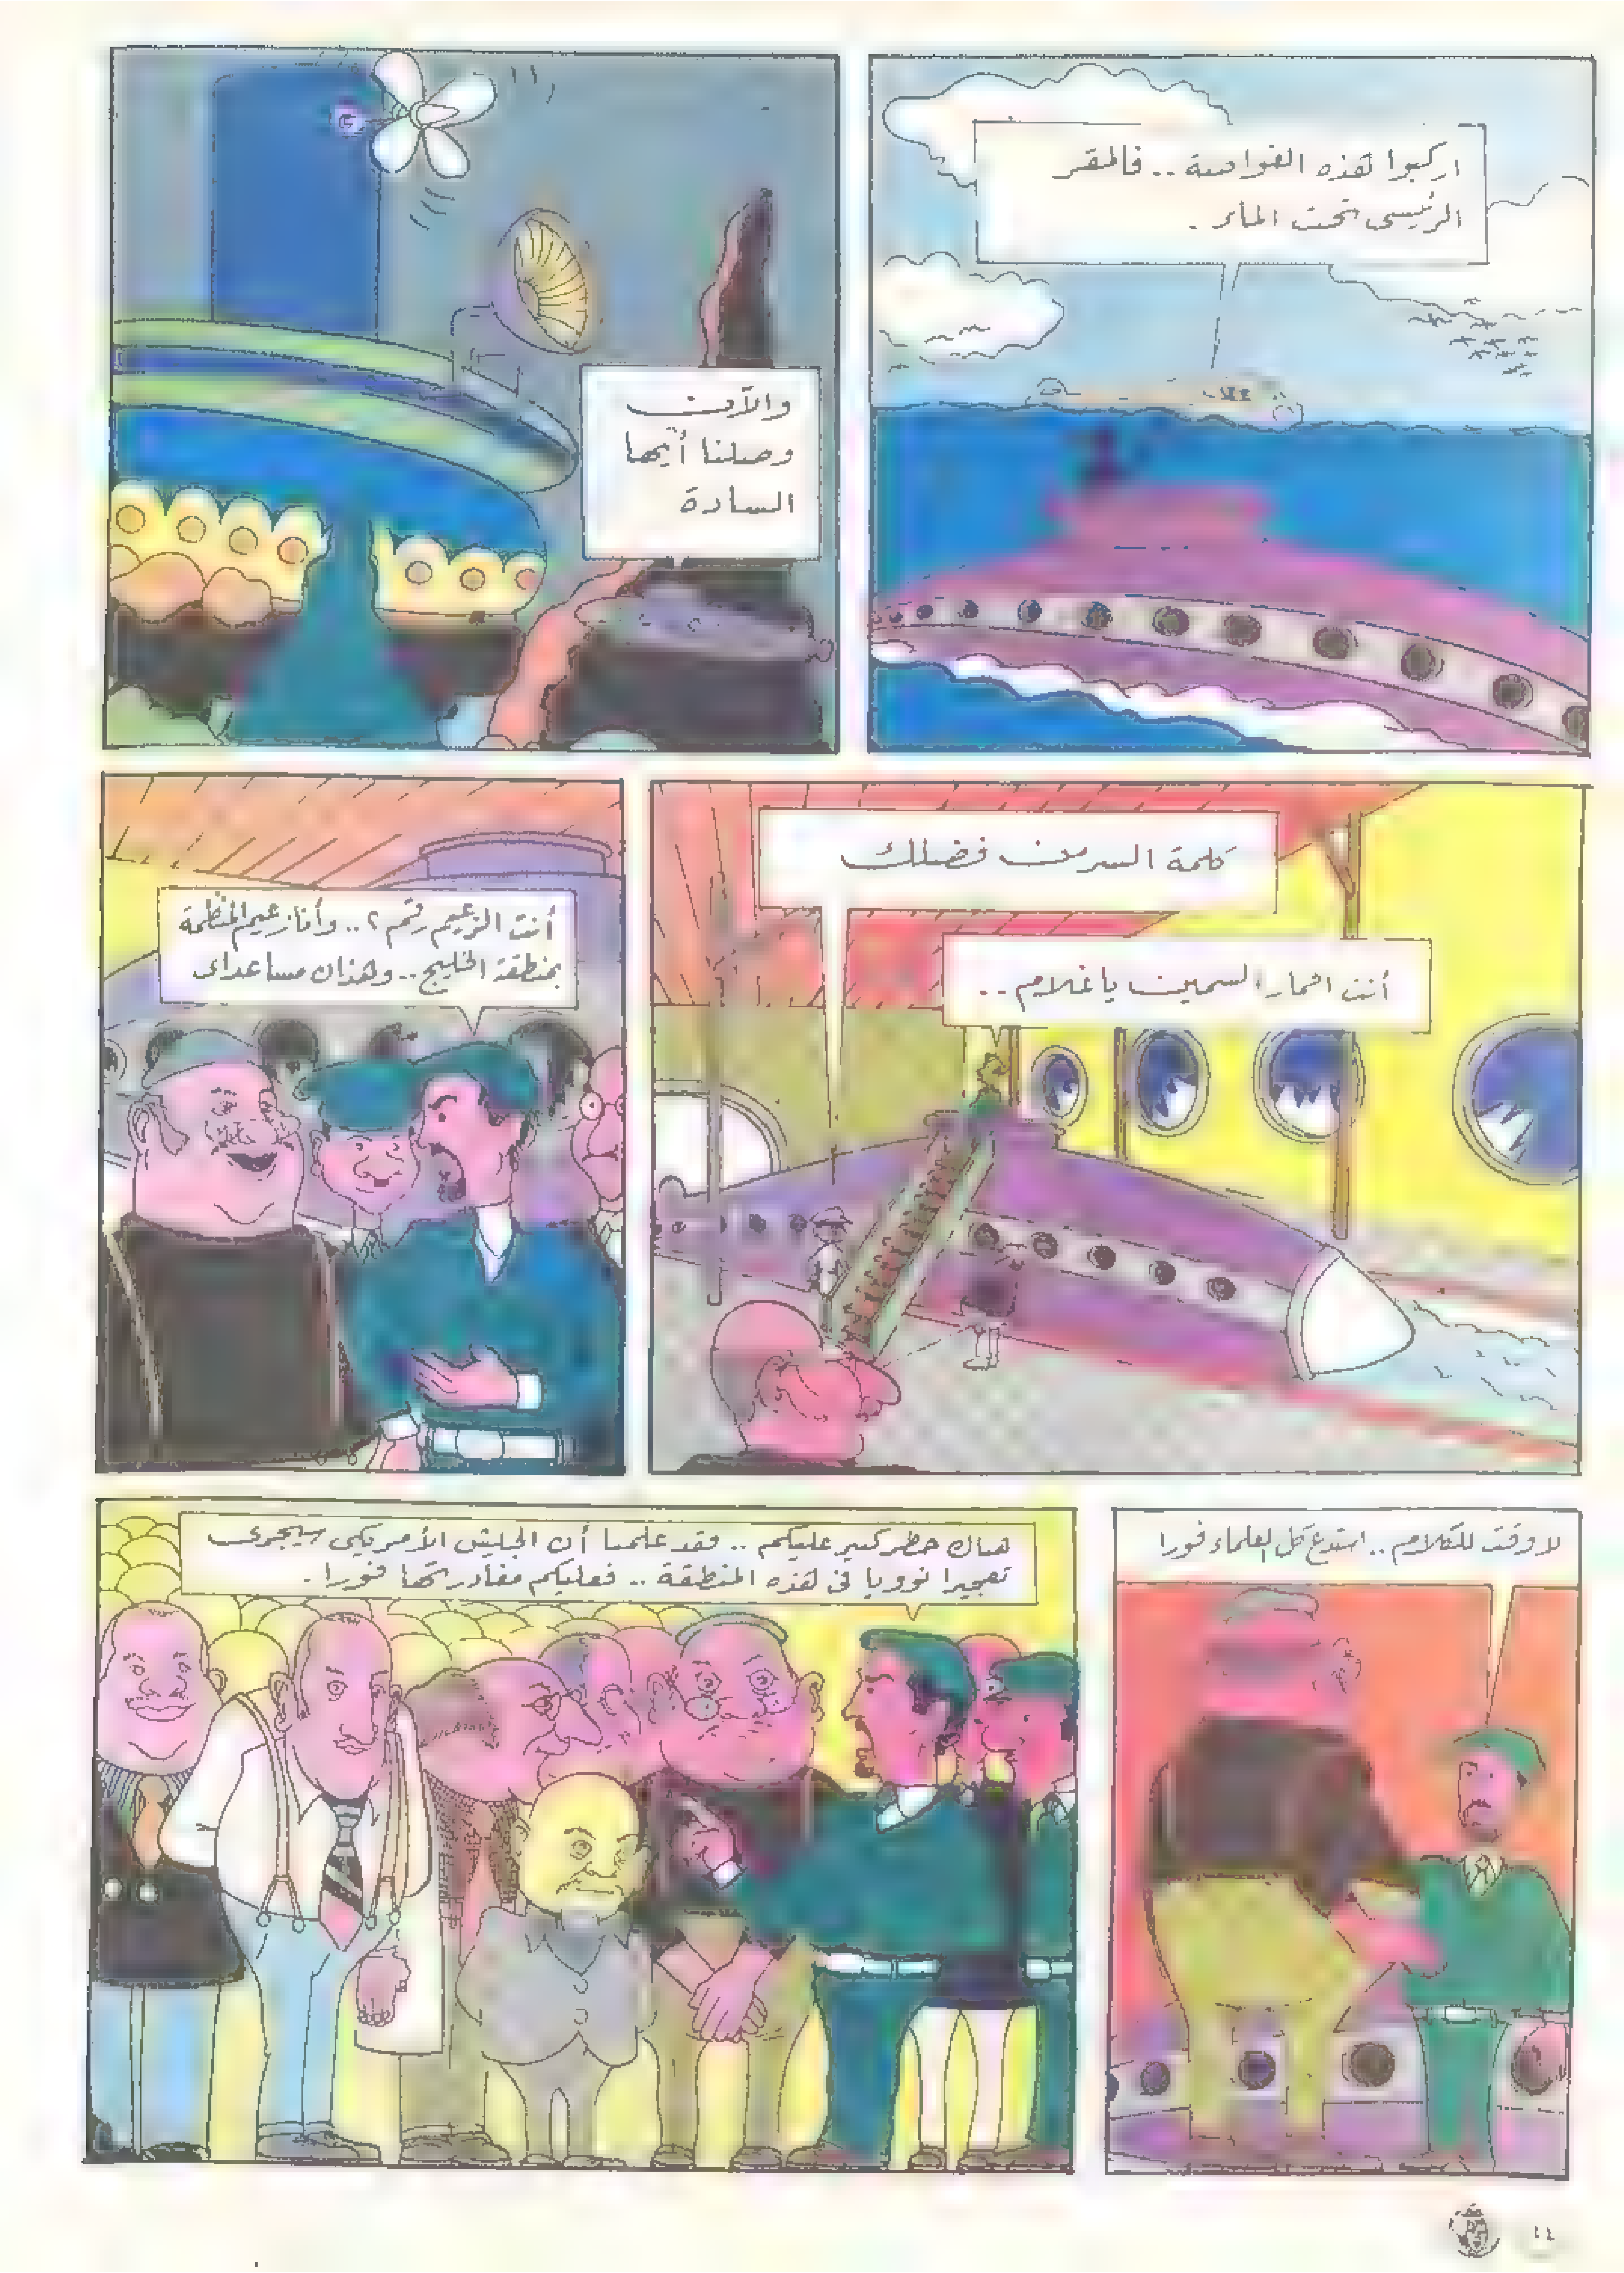 اركبوا هذه الغواصة .. فالمقر
الرئيسى تحت الماء .
والآن
وصلنا أيها
السادة
كلمة السر من فضلك
أنت الحمار السمين ياغلام ..
أنت الزعيم رقم ٢ .. وأنا زعيم المنظمة
بمنطقة الخليج .. وهذان مساعداى
لا وقت للكلام .. استدع كل العلماء فورا
هناك خطر كبير عليكم .. فقد علمنا أن الجيش الأمريكى سيجرى
تفجيرا نوويا فى هذه المنطقة .. فعليكم مغادرتها فورا .
٤٤